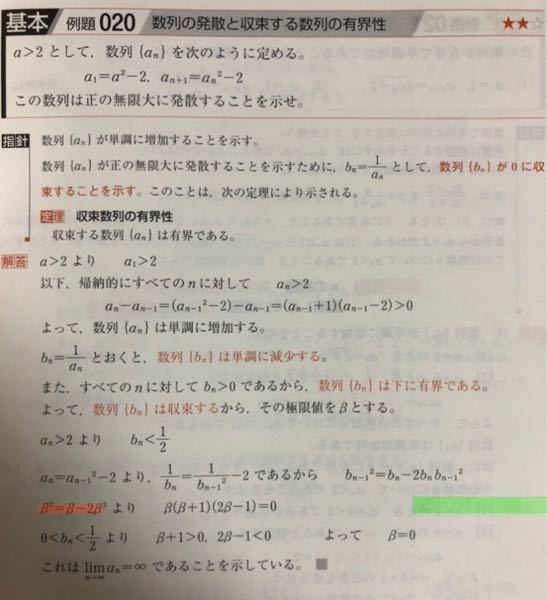 基本 例題 020 数列の発散と収束する数列の有界性 ★★☆
a>2 として，数列 {aₙ} を次のように定める。
a₁=a²−2, aₙ₊₁=aₙ²−2
この数列は正の無限大に発散することを示せ。
指針 数列 {aₙ} が単調に増加することを示す。
数列 {aₙ} が正の無限大に発散することを示すために，bₙ=1/aₙ として，数列 {bₙ} が 0 に収
束することを示す。このことは，次の定理により示される。
定理 収束数列の有界性
収束する数列 {aₙ} は有界である。
解答 a>2 より a₁>2
以下，帰納的にすべての n に対して aₙ>2
aₙ−aₙ₋₁=(aₙ₋₁²−2)−aₙ₋₁=(aₙ₋₁+1)(aₙ₋₁−2)>0
よって，数列 {aₙ} は単調に増加する。
bₙ=1/aₙ とおくと，数列 {bₙ} は単調に減少する。
また，すべての n に対して bₙ>0 であるから，数列 {bₙ} は下に有界である。
よって，数列 {bₙ} は収束するから，その極限値を β とする。
aₙ>2 より bₙ<1/2
aₙ=aₙ₋₁²−2 より，1/bₙ=1/bₙ₋₁²−2 であるから bₙ₋₁²=bₙ−2bₙbₙ₋₁²
β²=β−2β³ より β(β+1)(2β−1)=0
0<bₙ<1/2 より β+1>0, 2β−1<0 よって β=0
これは lim n→∞ aₙ=∞ であることを示している。 ■